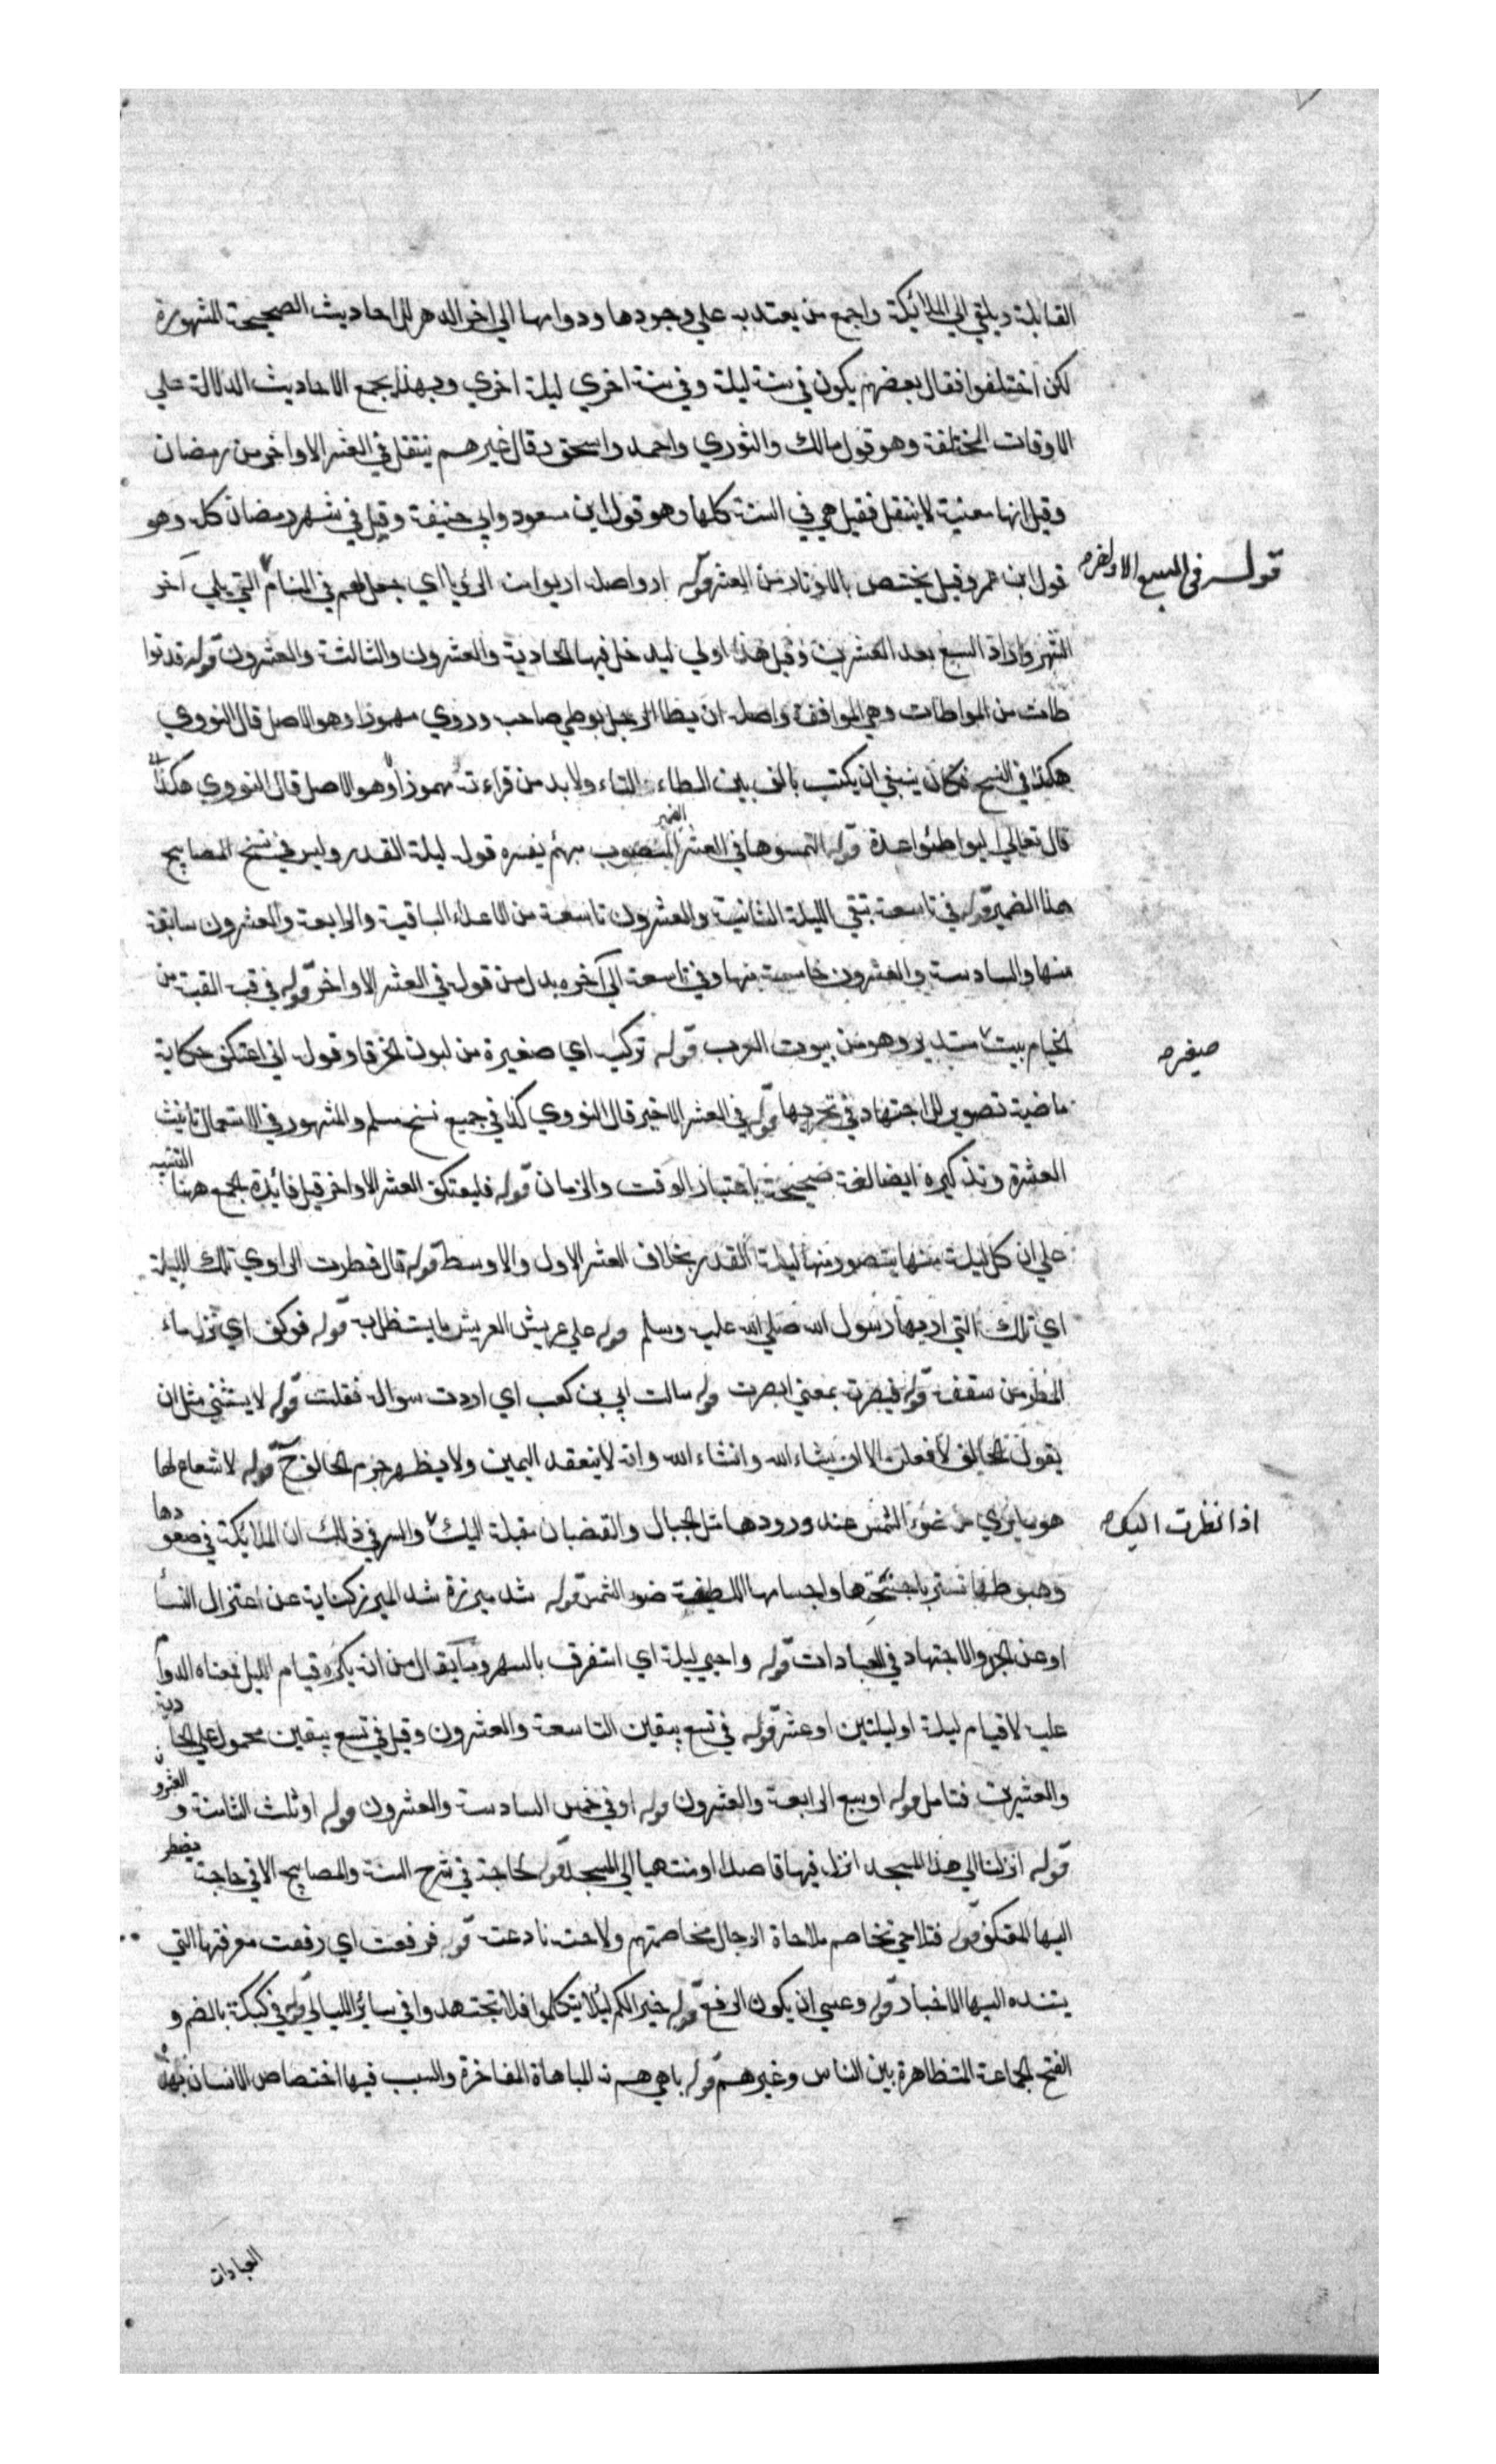 القابلة ويلقي الي الملائكة واجمع من يعتد به علي وجودها ودوامها الي اخر الدهر للاحاديث الصحيحة المشهورة
لكن اختلفوا فقال بعضهم يكون في سنة ليلة وفي سنة اخري ليلة اخري وبهذا يجمع الاحاديث الدلالة علي
الاوقات المختلفة وهو قول مالك والثوري واحمد واسحق وقال غيرهم ينتقل في العشر الاواخر من رمضان
وقيل انها معنية لا ينتقل فقيل هي في السنة كلها وهو قول ابن مسعود وابي حنيفة وقيل في شهر رمضان كله وهو
قوله في السبع الاواخر
قول ابن عمر وقيل يختص بالاوتار من العشر قوله اروا صله اريوا من الرؤيا اي جعل لهم في المنام التي يلي آخر
الشهر واراد السبع بعد العشرين وقيل هذا اولي ليدخل فيها الحادية والعشرون والثالثة والعشرون قوله قد توا
طات من المواطات وهي الموافقة واصله ان يطا الرجل بوطي صاحبه وروي مهموزا وهو الاصل قال النووي
هكذا في النسخ فكان ينبغي ان يكتب بالف بين الطاء والتاء ولابد من قراءته مهموزا وهو الاصل قال النووي هكذا
قال تعالي ليواطئوا عدة قوله التمسوها في العشر الضمير المنصوب مبهم يفسره قوله ليلة القدر وليس في نسخ المصابيح
هذا الضمير قوله في تاسعة تبقي الليلة الثانية والعشرون تاسعة من الاعداد الباقية والرابعة والعشرون سابعة
منها والسادسة والعشرون خامسة منها وفي تاسعة الي آخره بدل من قوله في العشر الاواخر قوله في قبة القبة من
الخيام بيت مستدير وهو من بيوت العرب قوله تركية اي صغيرة من لبون الخرقا وقوله اني اعتكف حكاية
صغير
ماضية تصوير للاجتهاد في تحريها قوله في العشر الاخير قال النووي كذا في جميع نسخ مسلم والمشهور في الاستعمال تانيث
العشرة وتذكيره ايضا لغة صحيحة باعتبار الوقت والزمان قوله فليعتكف العشر الاواخر قيل فائدة الجمع هنا التنبيه
علي ان كل ليلة منها يتصور منها ليلة القدر بخلاف العشر الاول والاوسط قوله قال فطرت الراوي تلك الليلة
اي تلك التي اريها رسول الله صلي الله عليه وسلم قوله علي عريش العريش ما يستظل به قوله فوكف اي نزل ماء
المطر من سقفه قوله فبصرت بمعني ابصرت قوله سالت ابي بن كعب اي اردت سواله فقلت قوله لا يستثني مثل ان
يقول الحالف لافعلن الا ان يشاء الله وانشاء الله وانه لا ينعقد اليمين ولا يظهر جزم الحالف ح قوله لا شعاع لها
هو ما يري من ضوء الشمس عند ورودها مثل الجبال والقضبان مقبلة اليك والسر في ذلك ان الملائكة في صعودها
اذا نظرت اليك
وهبوطها تستر باجنحتها واجسامها اللطيفة ضوء الشمس قوله شد ميزره شد الميزر كناية عن اعتزال النسأ
او عن الجد والاجتهاد في العبادات قوله واحيي ليلة اي استغرق بالسهر وما يقال من انه يكره قيام الليل فمعناه الدوا
عليه لا قيام ليلة او ليلتين او عشر قوله في تسع يبقين التاسعة والعشرون وقيل في تسع يبقين محمول علي الحادية
والعشرين فتامل قوله او سبع الرابعة والعشرون قوله او في خمس السادسة والعشرون قوله او ثلث الثامنة والعشرون
قوله انزلنا الي هذا المسجد انزل فيها قاصدا او منتهيا الي المسجد قوله لحاجة في شرح السنة والمصابيح الا في حاجة يضطر
اليها المعتكف قوله فتلاحي تخاصم ملاحاة الرجال مخاصمتهم ولاحت نادعت قوله فرفعت اي رفعت معرفتها التي
يستنده اليها الاخبار قوله وعسي ان يكون الرفع قوله خيرا لكم ليلا يتكلموا فلا تجتهدوا في سائر الليالي قوله في كبكبة بالضم و
الفتح الجماعة المتظاهرة بين الناس وغيرهم قوله باهي بهم نه المباهاة المفاخرة والسبب فيها اختصاص الانسان بهذه
العبادات